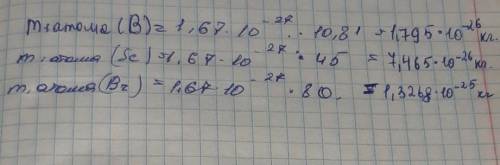 m 1 атома (B) = 1,67 · 10⁻²⁷ · 10,81 = 1,795 · 10⁻²⁶ кг.
m. атома (Sc) = 1,67 · 10⁻²⁷ · 45 = 7,465 · 10⁻²⁶ кг.
m. атома (Br) = 1,67 · 10⁻²⁷ · 80. = 1,3268 · 10⁻²⁵ кг